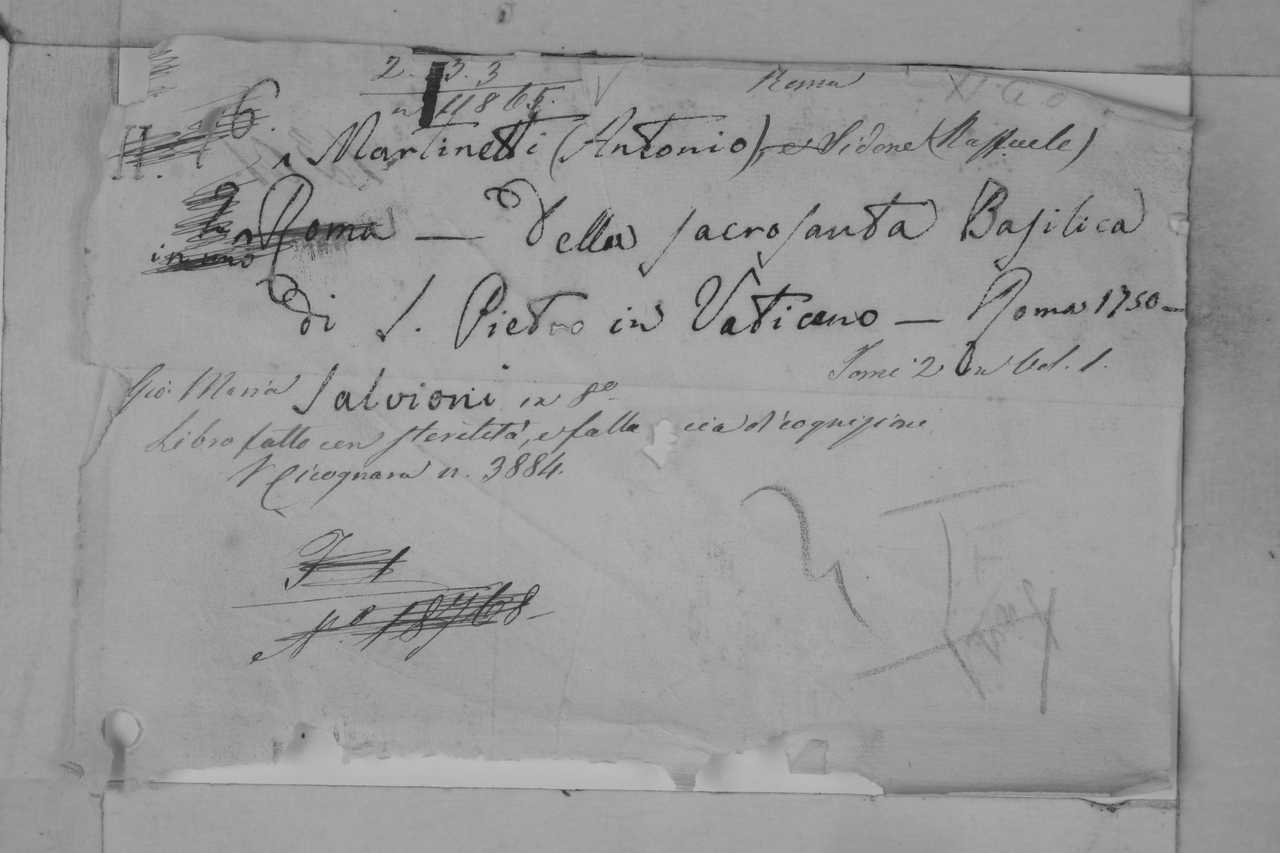 2. 3. 3
Roma
n 11865.
6.
Martinetti (Antonio), e Sidone (Raffaele)
Roma — Della sacrosanta Basilica
in uno
di S. Pietro in Vaticano — Roma 1750 —
Tomi 2 in Vol. 1.
Gio. Maria Salvioni in 8°
Libro fatto con sterilità, e falla cia di cognizioni
V Cicognara n. 3884.
N.° 18768